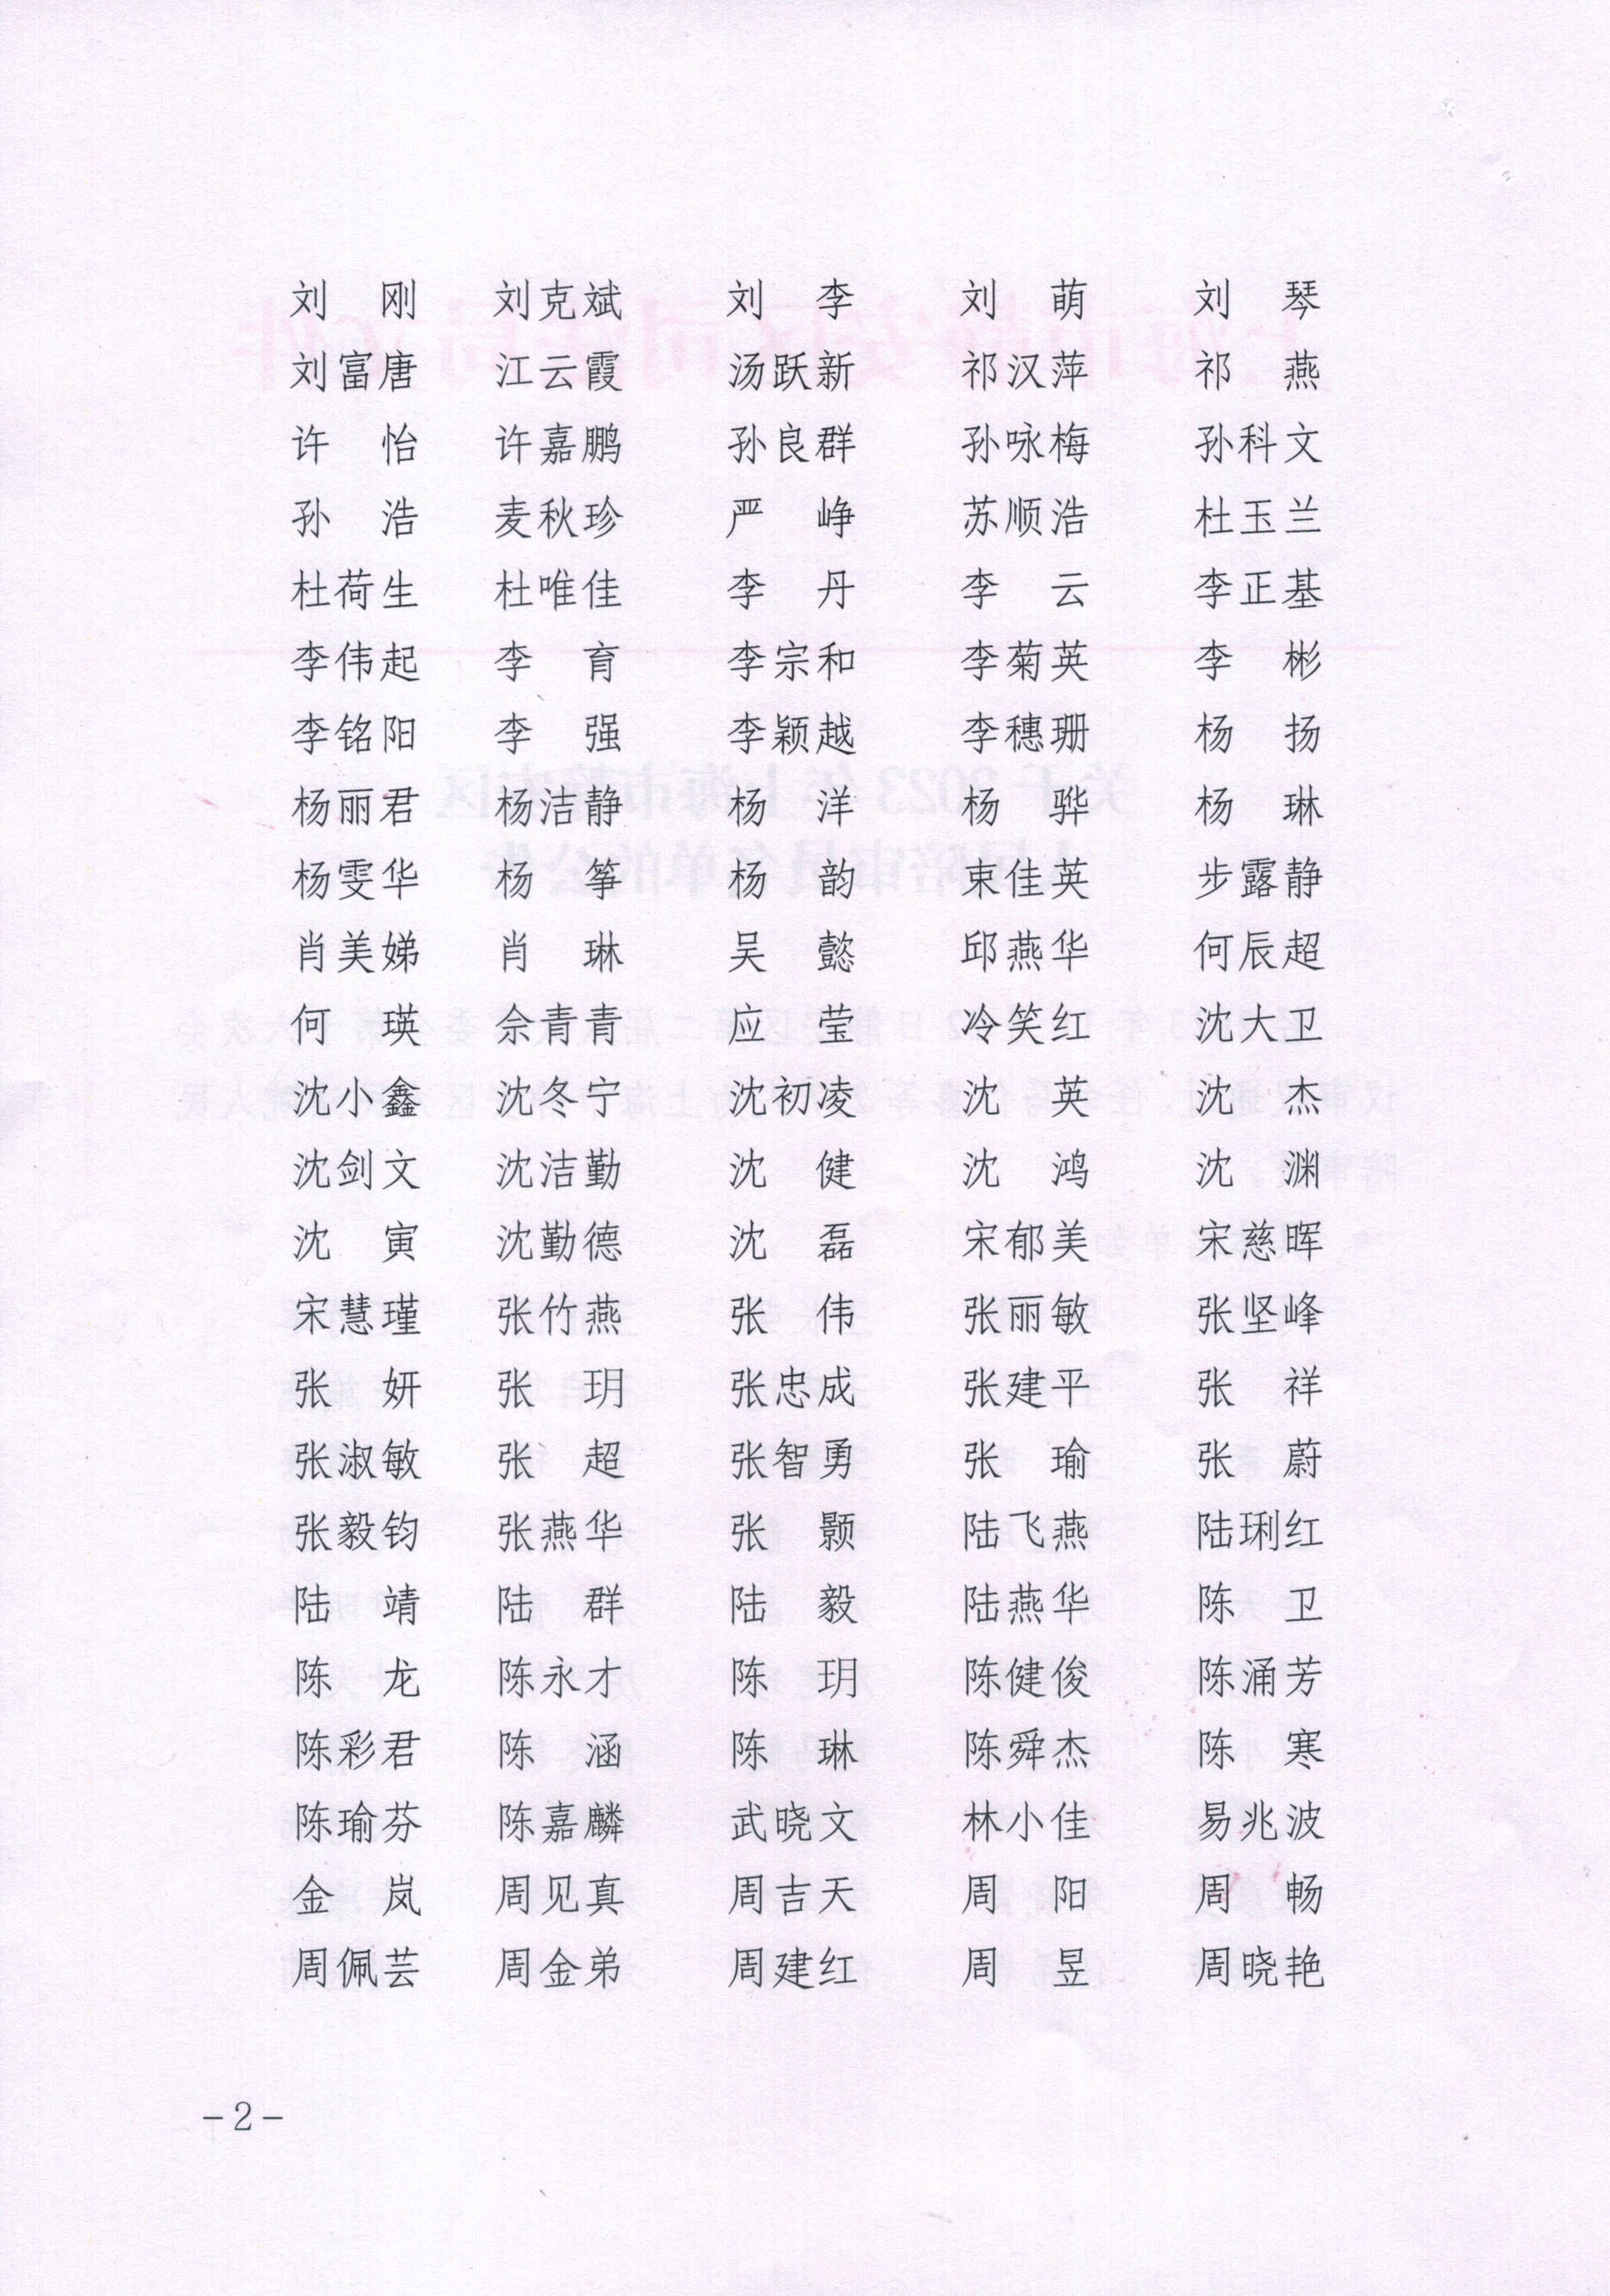 刘　刚　刘克斌　刘　李　刘　萌　刘　琴
刘富唐　江云霞　汤跃新　祁汉萍　祁　燕
许　怡　许嘉鹏　孙良群　孙咏梅　孙科文
孙　浩　麦秋珍　严　峥　苏顺浩　杜玉兰
杜荷生　杜唯佳　李　丹　李　云　李正基
李伟起　李　育　李宗和　李菊英　李　彬
李铭阳　李　强　李颖越　李穗珊　杨　扬
杨丽君　杨洁静　杨　洋　杨　骅　杨　琳
杨雯华　杨　筝　杨　韵　束佳英　步露静
肖美娣　肖　琳　吴　懿　邱燕华　何辰超
何　瑛　佘青青　应　莹　冷笑红　沈大卫
沈小鑫　沈冬宁　沈初凌　沈　英　沈　杰
沈剑文　沈洁勤　沈　健　沈　鸿　沈　渊
沈　寅　沈勤德　沈　磊　宋郁美　宋慈晖
宋慧瑾　张竹燕　张　伟　张丽敏　张坚峰
张　妍　张　玥　张忠成　张建平　张　祥
张淑敏　张　超　张智勇　张　瑜　张　蔚
张毅钧　张燕华　张　颢　陆飞燕　陆琍红
陆　靖　陆　群　陆　毅　陆燕华　陈　卫
陈　龙　陈永才　陈　玥　陈健俊　陈涌芳
陈彩君　陈　涵　陈　琳　陈舜杰　陈　寒
陈瑜芬　陈嘉麟　武晓文　林小佳　易兆波
金　岚　周见真　周吉天　周　阳　周　畅
周佩芸　周金弟　周建红　周　昱　周晓艳
-2-